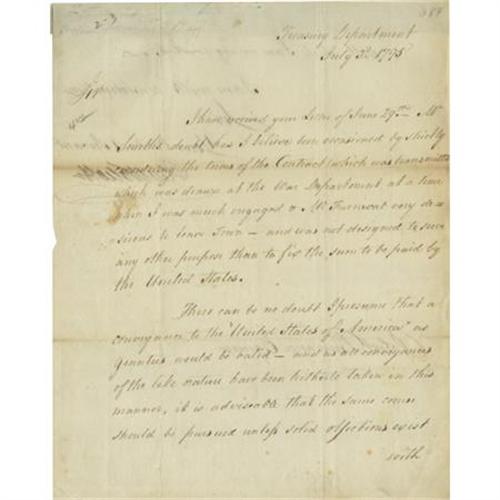 Treasury Department
July 3d 1795
Sir
I have received your Letter of June 29th. Mr
doubt has I believe been occasioned by strictly
considering the terms of the Contract (which was transmitted
which was drawn at the War Department at a time
when I was much engaged & Mr very de=
sirous to leave Town — and was not designed to serve
any other purpose than to fix the sum to be paid by
the United States.
There can be no doubt I presume that a
conveyance to the "United States of America" as
grantees would be valid — and as all conveyances
of the like nature have been hitherto taken in this
manner, it is adviseable that the same course
should be pursued unless solid objections exist
with